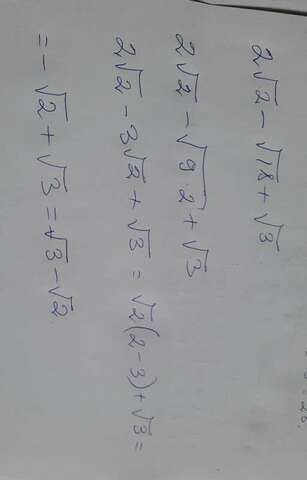 2√2 - √18 + √3
2√2 - √9·2 + √3
2√2 - 3√2 + √3 = √2(2-3) + √3 =
= -√2 + √3 = √3 - √2